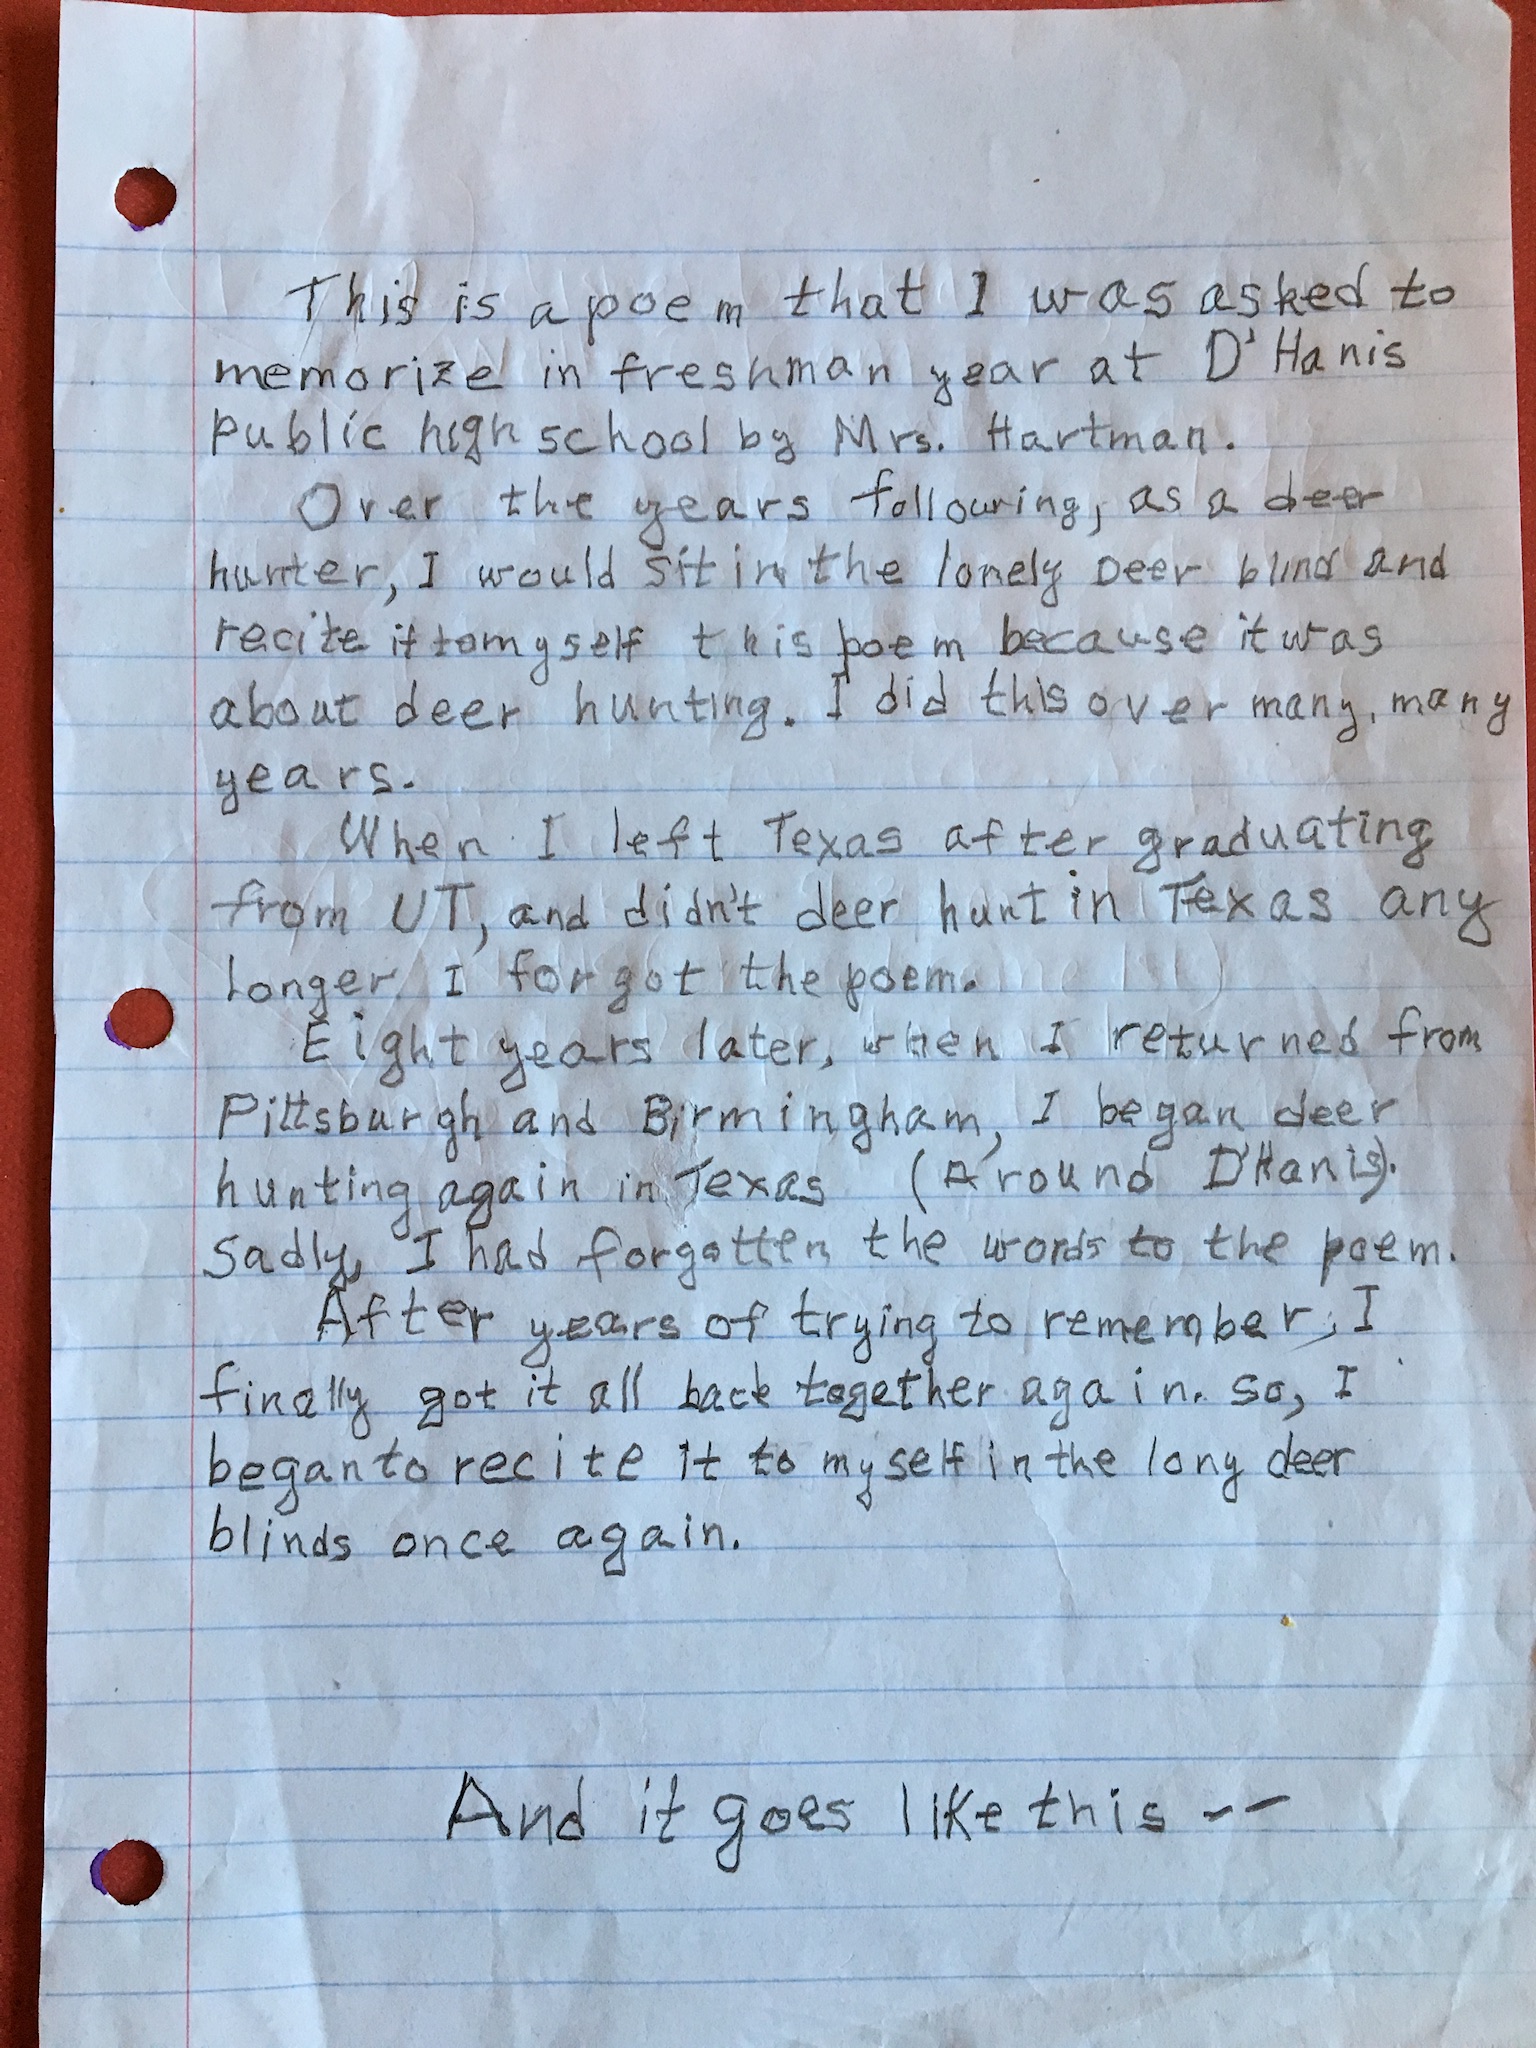 This is a poem that I was asked to
memorize in freshman year at D'Hanis
public high school by Mrs. Hartman.
Over the years following, as a deer
hunter, I would sit in the lonely Deer blind and
recite it to myself this poem because it was
about deer hunting. I did this over many, many
years.
When I left Texas after graduating
from UT, and didn't deer hunt in Texas any
longer, I forgot the poem.
Eight years later, when I returned from
Pittsburgh and Birmingham, I began deer
hunting again in Texas (Around D'Hanis).
Sadly, I had forgotten the words to the poem.
After years of trying to remember, I
finally got it all back together again. so, I
began to recite it to myself in the long deer
blinds once again.
And it goes like this --